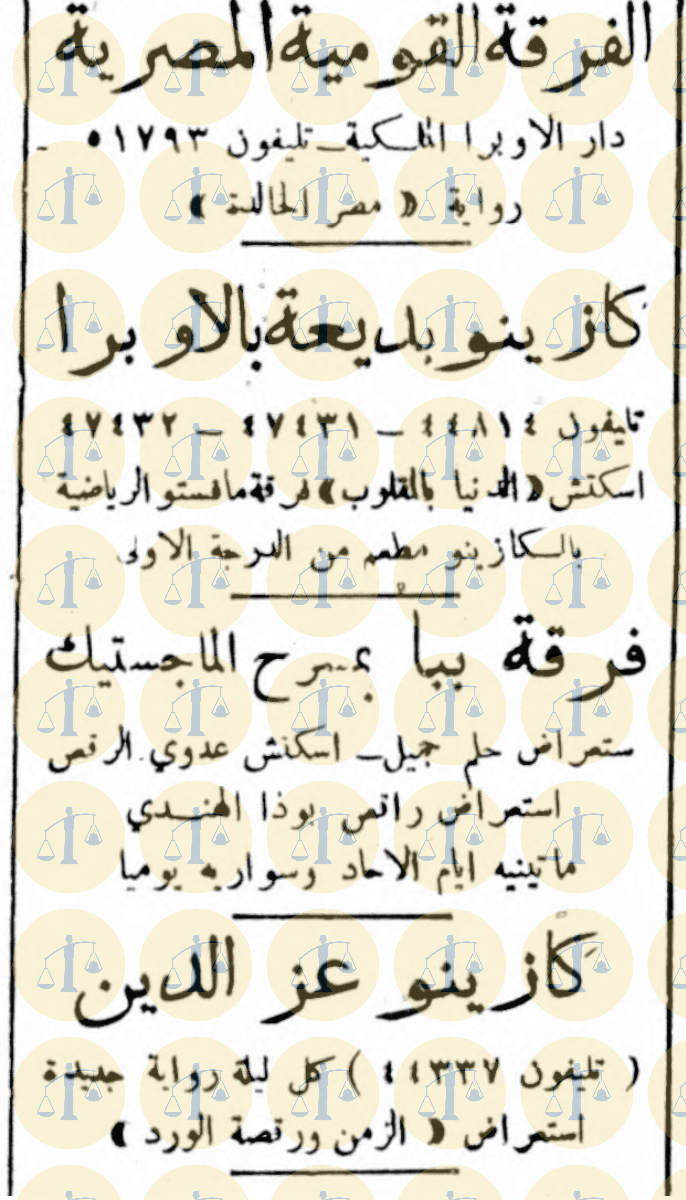 الفرقة القومية المصرية
دار الاوبرا الملكية ــ تليفون ٥١٧٩٣ -
رواية « مصر الخالدة »
كازينو بديعة بالاوبرا
تليفون ٤٤٨١٤ ــ ٤٧٤٣١ ــ ٤٧٤٣٢
اسكتش « الدنيا بالمقلوب » فرقة مافستو الرياضية
بالـكازينو مطعم من الدرجة الاولى
فرقة ببا بمسرح الماجستيك
ستعراض حلم جميل ــ اسكتش عدوي الرقص
استعراض راقص بوذا الهنـدي
ماتينيه ايام الاحاد وسواريه يوميا
كازينو عز الدين
( تليفون ٤٤٣٣٧ ) كل ليلة رواية جديدة
استعراض « الزمن ورقصة الورد »